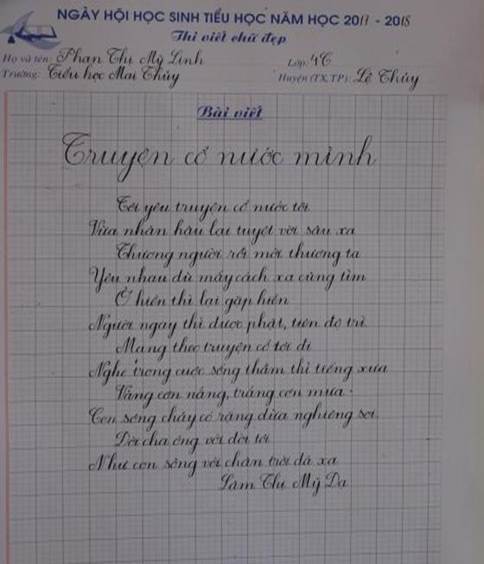 NGÀY HỘI HỌC SINH TIỂU HỌC NĂM HỌC 2017 - 2018
Thi viết chữ đẹp
Họ và tên: Phan Thị Mỹ Linh Lớp: 4C
Trường: Tiểu học Mai Thủy Huyện (TX, TP): Lệ Thủy
Bài viết
Truyện cổ nước mình
Tôi yêu truyện cổ nước tôi
Vừa nhân hậu lại tuyệt vời sâu xa
Thương người rồi mới thương ta
Yêu nhau dù mấy cách xa cũng tìm
Ở hiền thì lại gặp hiền
Người ngay thì được phật, tiên độ trì
Mang theo truyện cổ tôi đi
Nghe trong cuộc sống thầm thì tiếng xưa
Vàng cơn nắng, trắng cơn mưa
Con sông chảy có rặng dừa nghiêng soi
Đời cha ông với đời tôi
Như con sông với chân trời đã xa
Lâm Thị Mỹ Dạ